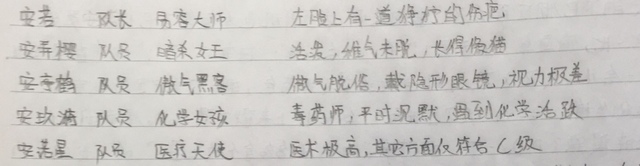 安若 队长 易容大师 左腿上有一道狰狞的伤疤
安弄樱 队员 暗杀女王 活泼,稚气未脱,长得很猫
安亭鹤 队员 傲气黑客 傲气脱俗,戴隐形眼镜,视力极差
安玖漓 队员 化学女孩 毒药师,平时沉默,遇到化学活跃
安若星 队员 医疗天使 医术极高,其它方面仅符合C级